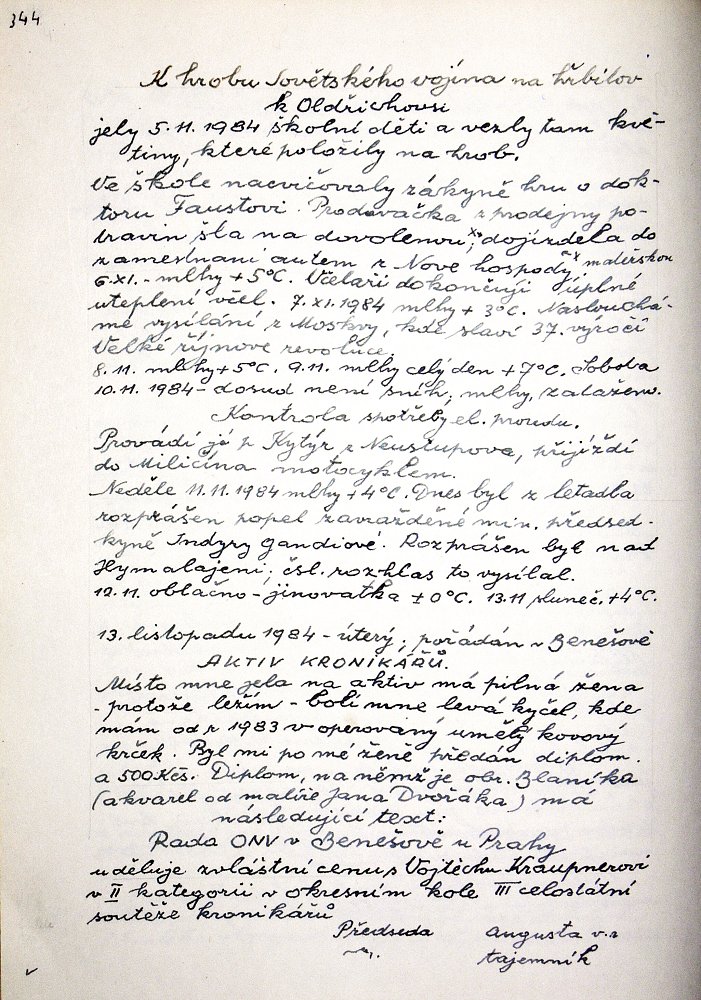 344
K hrobu Sovětského vojína na hřbitov
k Oldřichovsi
jely 5.11.1984 školní děti a vezly tam kvě-
tiny, které položily na hrob.
Ve škole nacvičovaly žákyně hru o dok-
toru Faustovi. Prodavačka z prodejny po-
travin šla na dovolenou x), dojížděla do
zaměstnání autem z Nové hospody x mateřskou
6.XI. - mlhy +5°C. Včelaři dokončují úplné
uteplení včel. 7.XI.1984 mlhy + 3°C. Naslouchá-
me vysílání z Moskvy, kde slaví 37. výročí
Velké říjnové revoluce.
8.11. mlhy +5°C. 9.11. mlhy celý den +7°C. Sobota
10.11. 1984 - dosud není sníh, mlhy, zataženo.
Kontrola spotřeby el. proudu.
Provádí ji p. Kytýr z Neustupova, přijíždí
do Miličína motocyklem.
Neděle 11.11.1984 mlhy +4°C. Dnes byl z letadla
rozprášen popel zavražděné min. předsed-
kyně Indyry Gandiové. Rozprášen byl nad
Hymalajemi; čsl. rozhlas to vysílal.
12.11. oblačno - jinovatka ±0°C. 13.11 sluneč. +4°C.
13. listopadu 1984 - úterý; pořádán v Benešově
AKTIV KRONIKÁŘŮ.
Místo mne jela na aktiv má pilná žena
- protože ležím - bolí mne levá kyčel, kde
mám od r 1983 voperovaný umělý kovový
krček. Byl mi po mé ženě předán diplom.
a 500 Kčs. Diplom, na němž je obr. Blaníka
(akvarel od malíře Jana Dvořáka) má
následující text:
Rada ONV v Benešově u Prahy
uděluje zvláštní cenu s Vojtěchu Kraupnerovi
v II kategorii v okresním kole III celostátní
soutěže kronikářů
Předseda Augusta v.r
tajemník